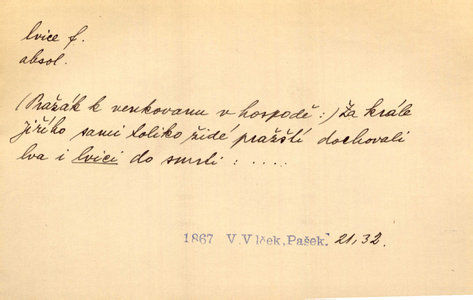 lvice f.
absol.
(Pražák k venkovanu v hospodě:) Za krále
jiřího sami toliko židé pražští dochovali
lva i lvici do smrti : .....
1867 V.Vlček, Pašek. 21, 32.